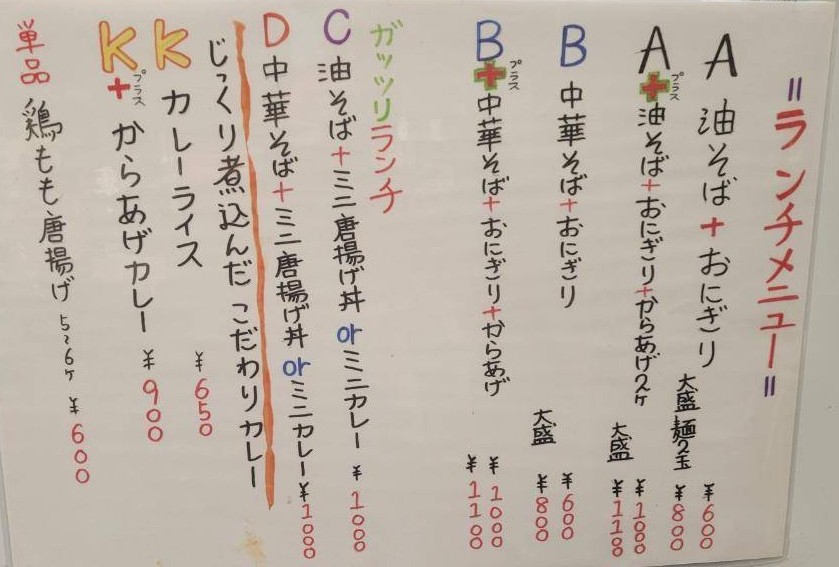 =ランチメニュー=
A 油そば+おにぎり ¥600
大盛 麺2玉 ¥800
A+プラス 油そば+おにぎり+からあげ2ヶ ¥1000
大盛 ¥1100
B 中華そば+おにぎり ¥600
大盛 ¥800
B+プラス 中華そば+おにぎり+からあげ ¥1000
¥1100
ガッツリランチ
C 油そば+ミニ唐揚げ丼orミニカレー ¥1000
D 中華そば+ミニ唐揚げ丼orミニカレー ¥1000
じっくり煮込んだこだわりカレー
K カレーライス ¥650
K+プラス からあげカレー ¥900
単品 鶏もも唐揚げ 5~6ヶ ¥600